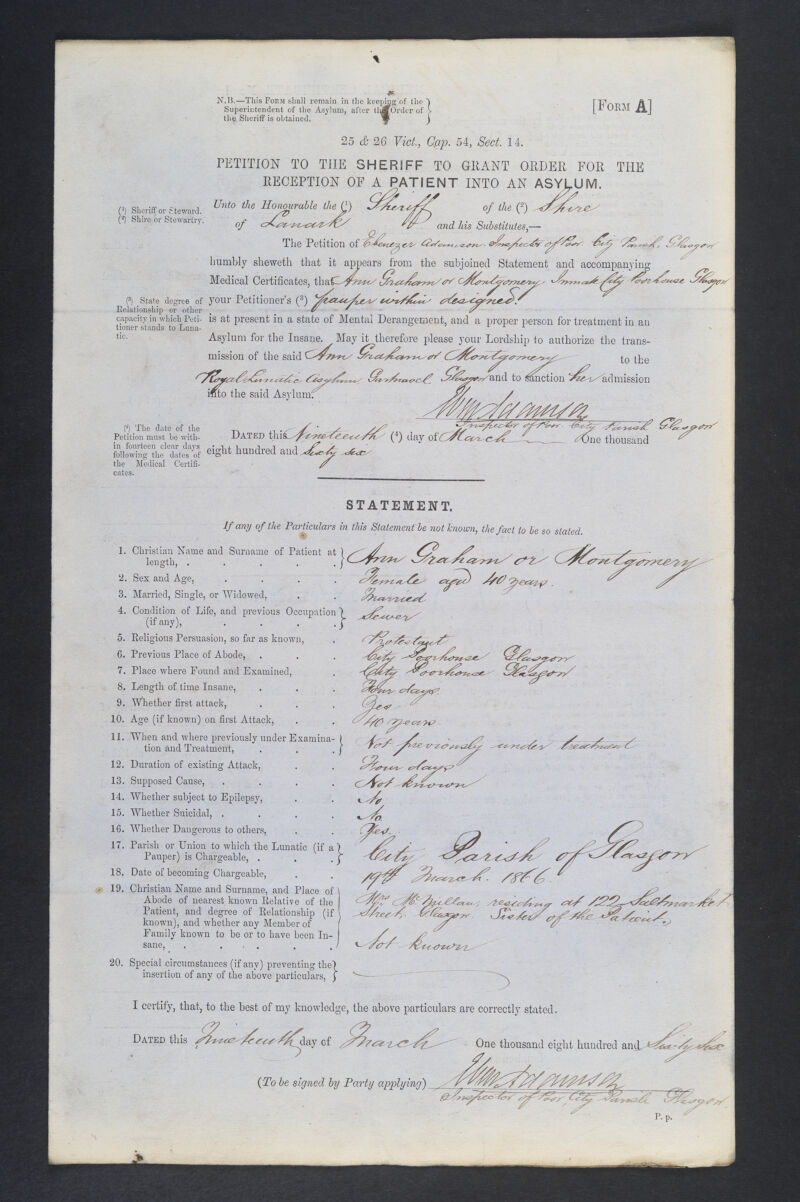 N.B.—This Form shall remain in the keeping of the
Superintendent of the Asylum, after the Order of
the Sheriff is obtained.
[Form A]
25 & 26 Vict., Cap. 54, Sect. 14.
PETITION TO THE SHERIFF TO GRANT ORDER FOR THE
RECEPTION OF A PATIENT INTO AN ASYLUM.
(1) Sheriff or Steward.
(2) Shire or Stewartry.
Unto the Honourable the (1) Sheriff of the (2) Shire
of Lanark and his Substitutes,—
The Petition of Ebenezer Adamson Inspector of Poor City Parish, Glasgow
humbly sheweth that it appears from the subjoined Statement and accompanying
Medical Certificates, that Ann Graham or Montgomery Inmate City Poorhouse Glasgow
(3) State degree of
Relationship or other
capacity in which Peti-
tioner stands to Luna-
tic.
your Petitioner's (3) pauper within designed.
is at present in a state of Mental Derangement, and a proper person for treatment in an
Asylum for the Insane. May it therefore please your Lordship to authorize the trans-
mission of the said Ann Graham or Montgomery to the
Royal Lunatic Asylum Gartnavel Glasgow and to sanction her admission
into the said Asylum.
Adamson
Inspector of Poor City Parish Glasgow
(4) The date of the
Petition must be with-
in fourteen clear days
following the dates of
the Medical Certifi-
cates.
Dated this Nineteenth (4) day of March One thousand
eight hundred and Sixty six
STATEMENT.
If any of the Particulars in this Statement be not known, the fact to be so stated.
1. Christian Name and Surname of Patient at
length, . Ann Graham or Montgomery
2. Sex and Age, Female aged 40 years.
3. Married, Single, or Widowed, Married
4. Condition of Life, and previous Occupation
(if any), Sewer
5. Religious Persuasion, so far as known, Protestant
6. Previous Place of Abode, City Poorhouse Glasgow
7. Place where Found and Examined, City Poorhouse Glasgow
8. Length of time Insane, Four days
9. Whether first attack, Yes
10. Age (if known) on first Attack, 40 years
11. When and where previously under Examina-
tion and Treatment, Not previously under treatment
12. Duration of existing Attack, Four days
13. Supposed Cause, Not known
14. Whether subject to Epilepsy, No
15. Whether Suicidal, No
16. Whether Dangerous to others, Yes
17. Parish or Union to which the Lunatic (if a
Pauper) is Chargeable, City Parish of Glasgow
18. Date of becoming Chargeable, 19th March. 1866.
19. Christian Name and Surname, and Place of
Abode of nearest known Relative of the
Patient, and degree of Relationship (if
known), and whether any Member of
Family known to be or to have been In-
sane,
Mrs McMillan, residing at 122 Saltmarket
Street, Glasgow. Sister of the Patient.
Not known
20. Special circumstances (if any) preventing the
insertion of any of the above particulars,
I certify, that, to the best of my knowledge, the above particulars are correctly stated.
Dated this Nineteenth day of March One thousand eight hundred and Sixty Six
(To be signed by Party applying) Adamson
Inspector of Poor, City Parish Glasgow
P. p.